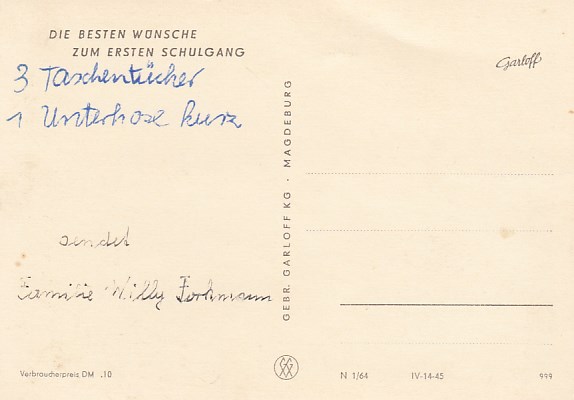 DIE BESTEN WÜNSCHE
ZUM ERSTEN SCHULGANG
3 Taschentücher
1 Unterhose kurz
sendet
Familie Willy Forkmann
Verbraucherpreis DM .10
GEBR. GARLOFF KG · MAGDEBURG
Garloff
N 1/64
IV-14-45
999